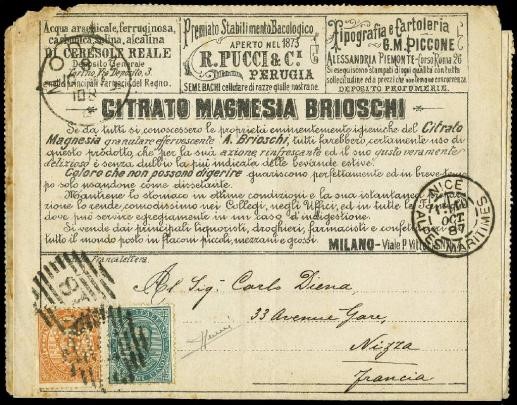 Acqua arsenicale, ferruginosa,
carbonica, salina, alcalina
DI CERESOLE REALE
Deposito Generale
Torino, Via Deposito, 3.
e nelle principali Farmacie del Regno.
Premiato Stabilimento Bacologico
APERTO NEL 1873
R. PUCCI & Ci
PERUGIA
SEME BACHI cellulare di razze gialle nostrane.
Tipografia e Cartoleria
G. M. PICCONE
ALESSANDRIA PIEMONTE - Corso Roma 26
Si eseguiscono stampati d'ogni qualità con tutta
sollecitudine ed a prezzi che non temono concorrenza
DEPOSITO PROFUMERIE.
CITRATO MAGNESIA BRIOSCHI
Se da tutti si conoscessero le proprietà eminentemente igieniche del Citrato
Magnesia granulare effervescente A. Brioschi, tutti farebbero certamente uso di
questo prodotto, che per la sua azione rinfrescante ed il suo gusto veramente
delizioso è senza dubbio la più indicata delle bevande estive.
Coloro che non possono digerire guariscono perfettamente ed in breve tem-
po solo usandone come dissetante.
Mantenere lo stomaco in ottime condizioni e la sua istantanea
zione lo rende, comodissimo nei Collegi, negli Uffici, ed in tutte le
dove può servire egregiamente in caso d'un indigestione.
Si vende dai principali liquoristi, droghieri, farmacisti e confett
tutto il mondo posto in flaconi piccoli, mezzani e grossi.
MILANO - Viale P. Vitt
NICE
OCT
87
ALPES MARITIMES
Francalettera.
Al Sigr Carlo Diena,
33 Avenue Gare,
Nizza
Francia